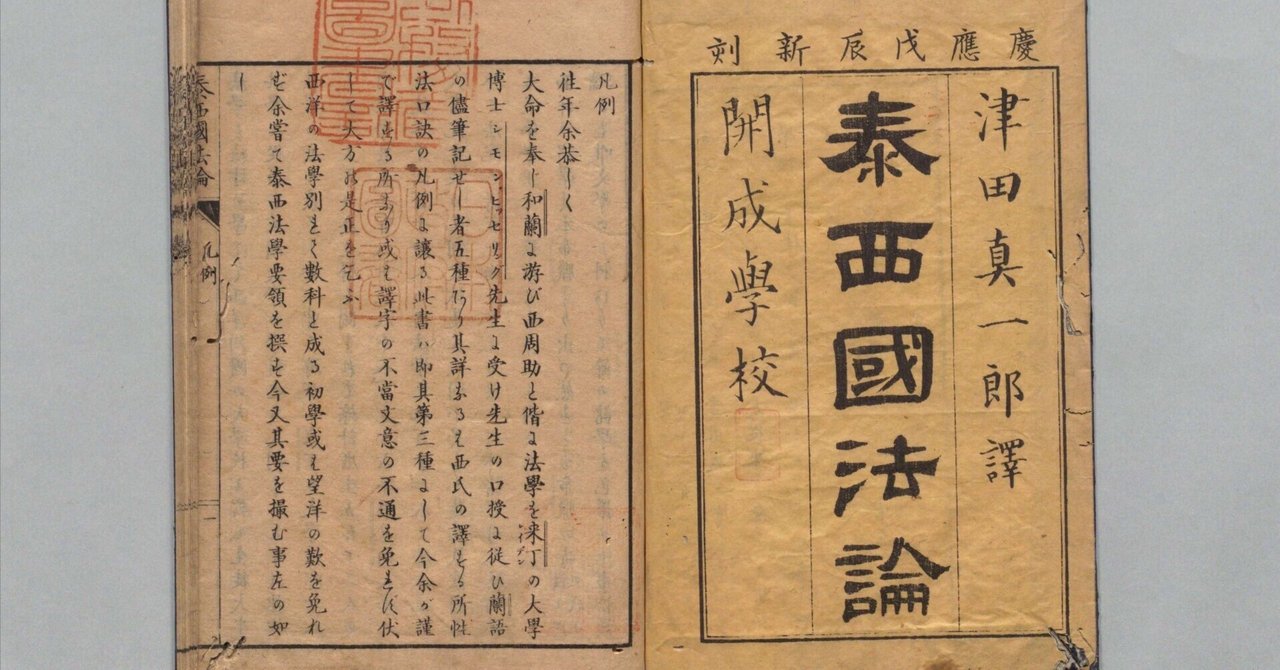 慶應戊辰新刻
津田真一郎譯
泰西國法論
開成學校
凡例
徃年余恭しく
大命を奉し和蘭に游び西周助と偕に法學を来丁の大學
博士シモンヒッセリング先生に受け先生の口授に從ひ蘭語
の儘筆記せし者五種あり其詳なるは西氏の譯する所性
法口訣の凡例に讓る此書ハ即其第三種にして今余が謹
で譯する所なり或は譯字の不當文意の不通を免ず伏
して大方の是正を乞ふ
西洋の法學別ちて數科と成る初學或は望洋の歎を免れ
ず余嘗て泰西法學要領を撰す今又其要を撮む事左の如
し
泰西國法論
凡例
一